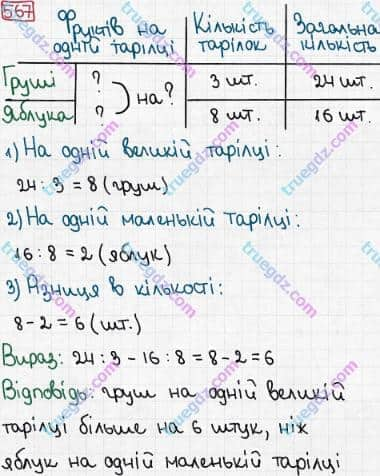 567
Фруктів на одній тарілці | Кількість тарілок | Загальна кількість
Груші | ? | 3 шт. | 24 шт.
на ?
Яблука | ? | 8 шт. | 16 шт.
1) На одній великій тарілці:
24 : 3 = 8 (груш)
2) На одній маленькій тарілці:
16 : 8 = 2 (яблук)
3) Різниця в кількості:
8 - 2 = 6 (шт.)
Вираз: 24 : 3 - 16 : 8 = 8 - 2 = 6
Відповідь: груш на одній великій
тарілці більше на 6 штук, ніж
яблук на одній маленькій тарілці
truegdz.com